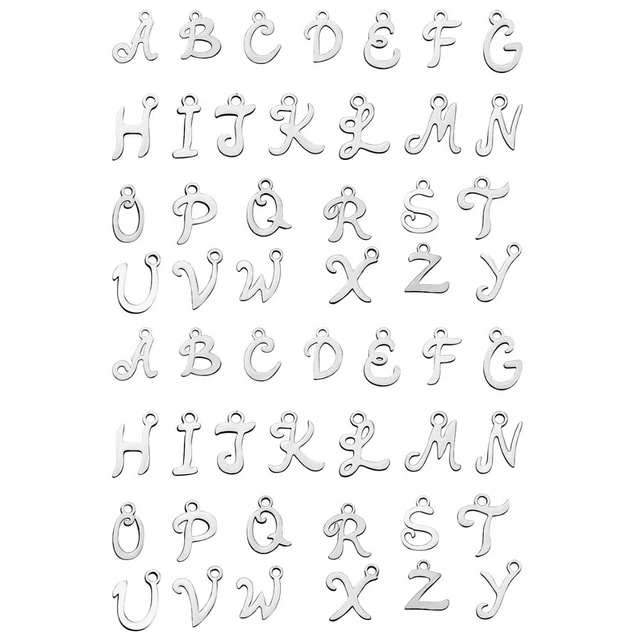 A B C D E F G
H I J K L M N
O P Q R S T
U V W X Z Y
A B C D E F G
H I J K L M N
O P Q R S T
U V W X Z Y